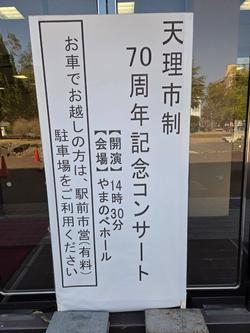 天理市制
70周年記念コンサート
【開演】14時30分
【会場】やまのべホール
お車でお越しの方は、駅前市営(有料)
駐車場をご利用ください